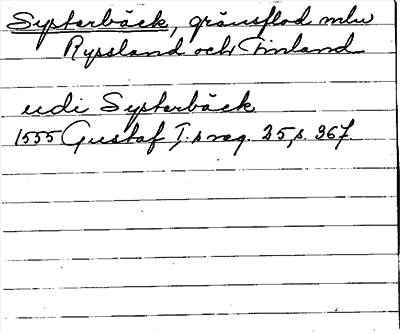 Systerbäck, gränsflod mlw
Ryssland och Finland
udi Systerbäck
1555 Gustaf I:s reg. 25, s. 367.